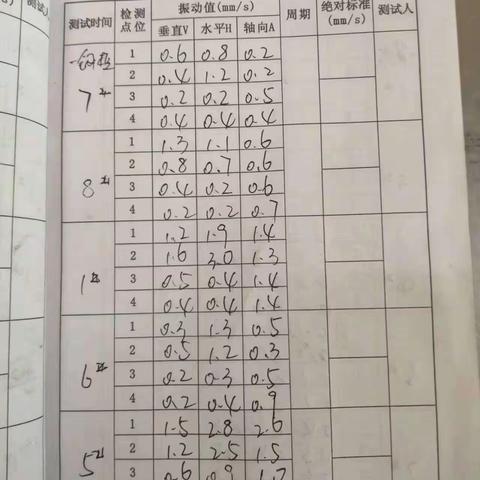 测试时间 检测点位 振动值(mm/s) 周期 绝对标准(mm/s) 测试人
垂直V 水平H 轴向A
1 0.6 0.8 0.2
2 0.4 1.2 0.2
7# 3 0.2 0.2 0.5
4 0.4 0.4 0.4
1 1.3 1.1 0.6
2 0.8 0.7 0.6
8# 3 0.4 0.2 0.6
4 0.2 0.2 0.7
1 1.2 1.9 1.4
2 1.6 3.0 1.3
1# 3 0.5 0.4 1.4
4 0.4 0.4 1.4
1 0.3 1.3 0.5
2 0.5 1.2 0.3
6# 3 0.2 0.3 0.5
4 0.2 0.4 0.9
1 1.5 2.8 2.6
2 1.2 2.5 1.5
5# 3 0.6 0.9 1.7